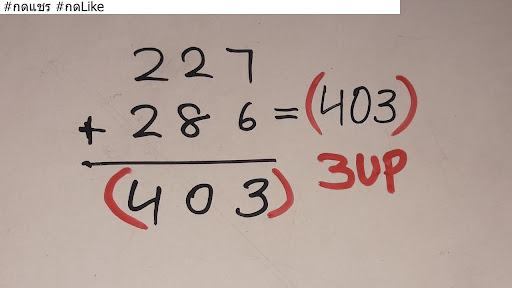 #กดแชร์ #กดLike
227
+ 286 = (403)
(403) 3UP